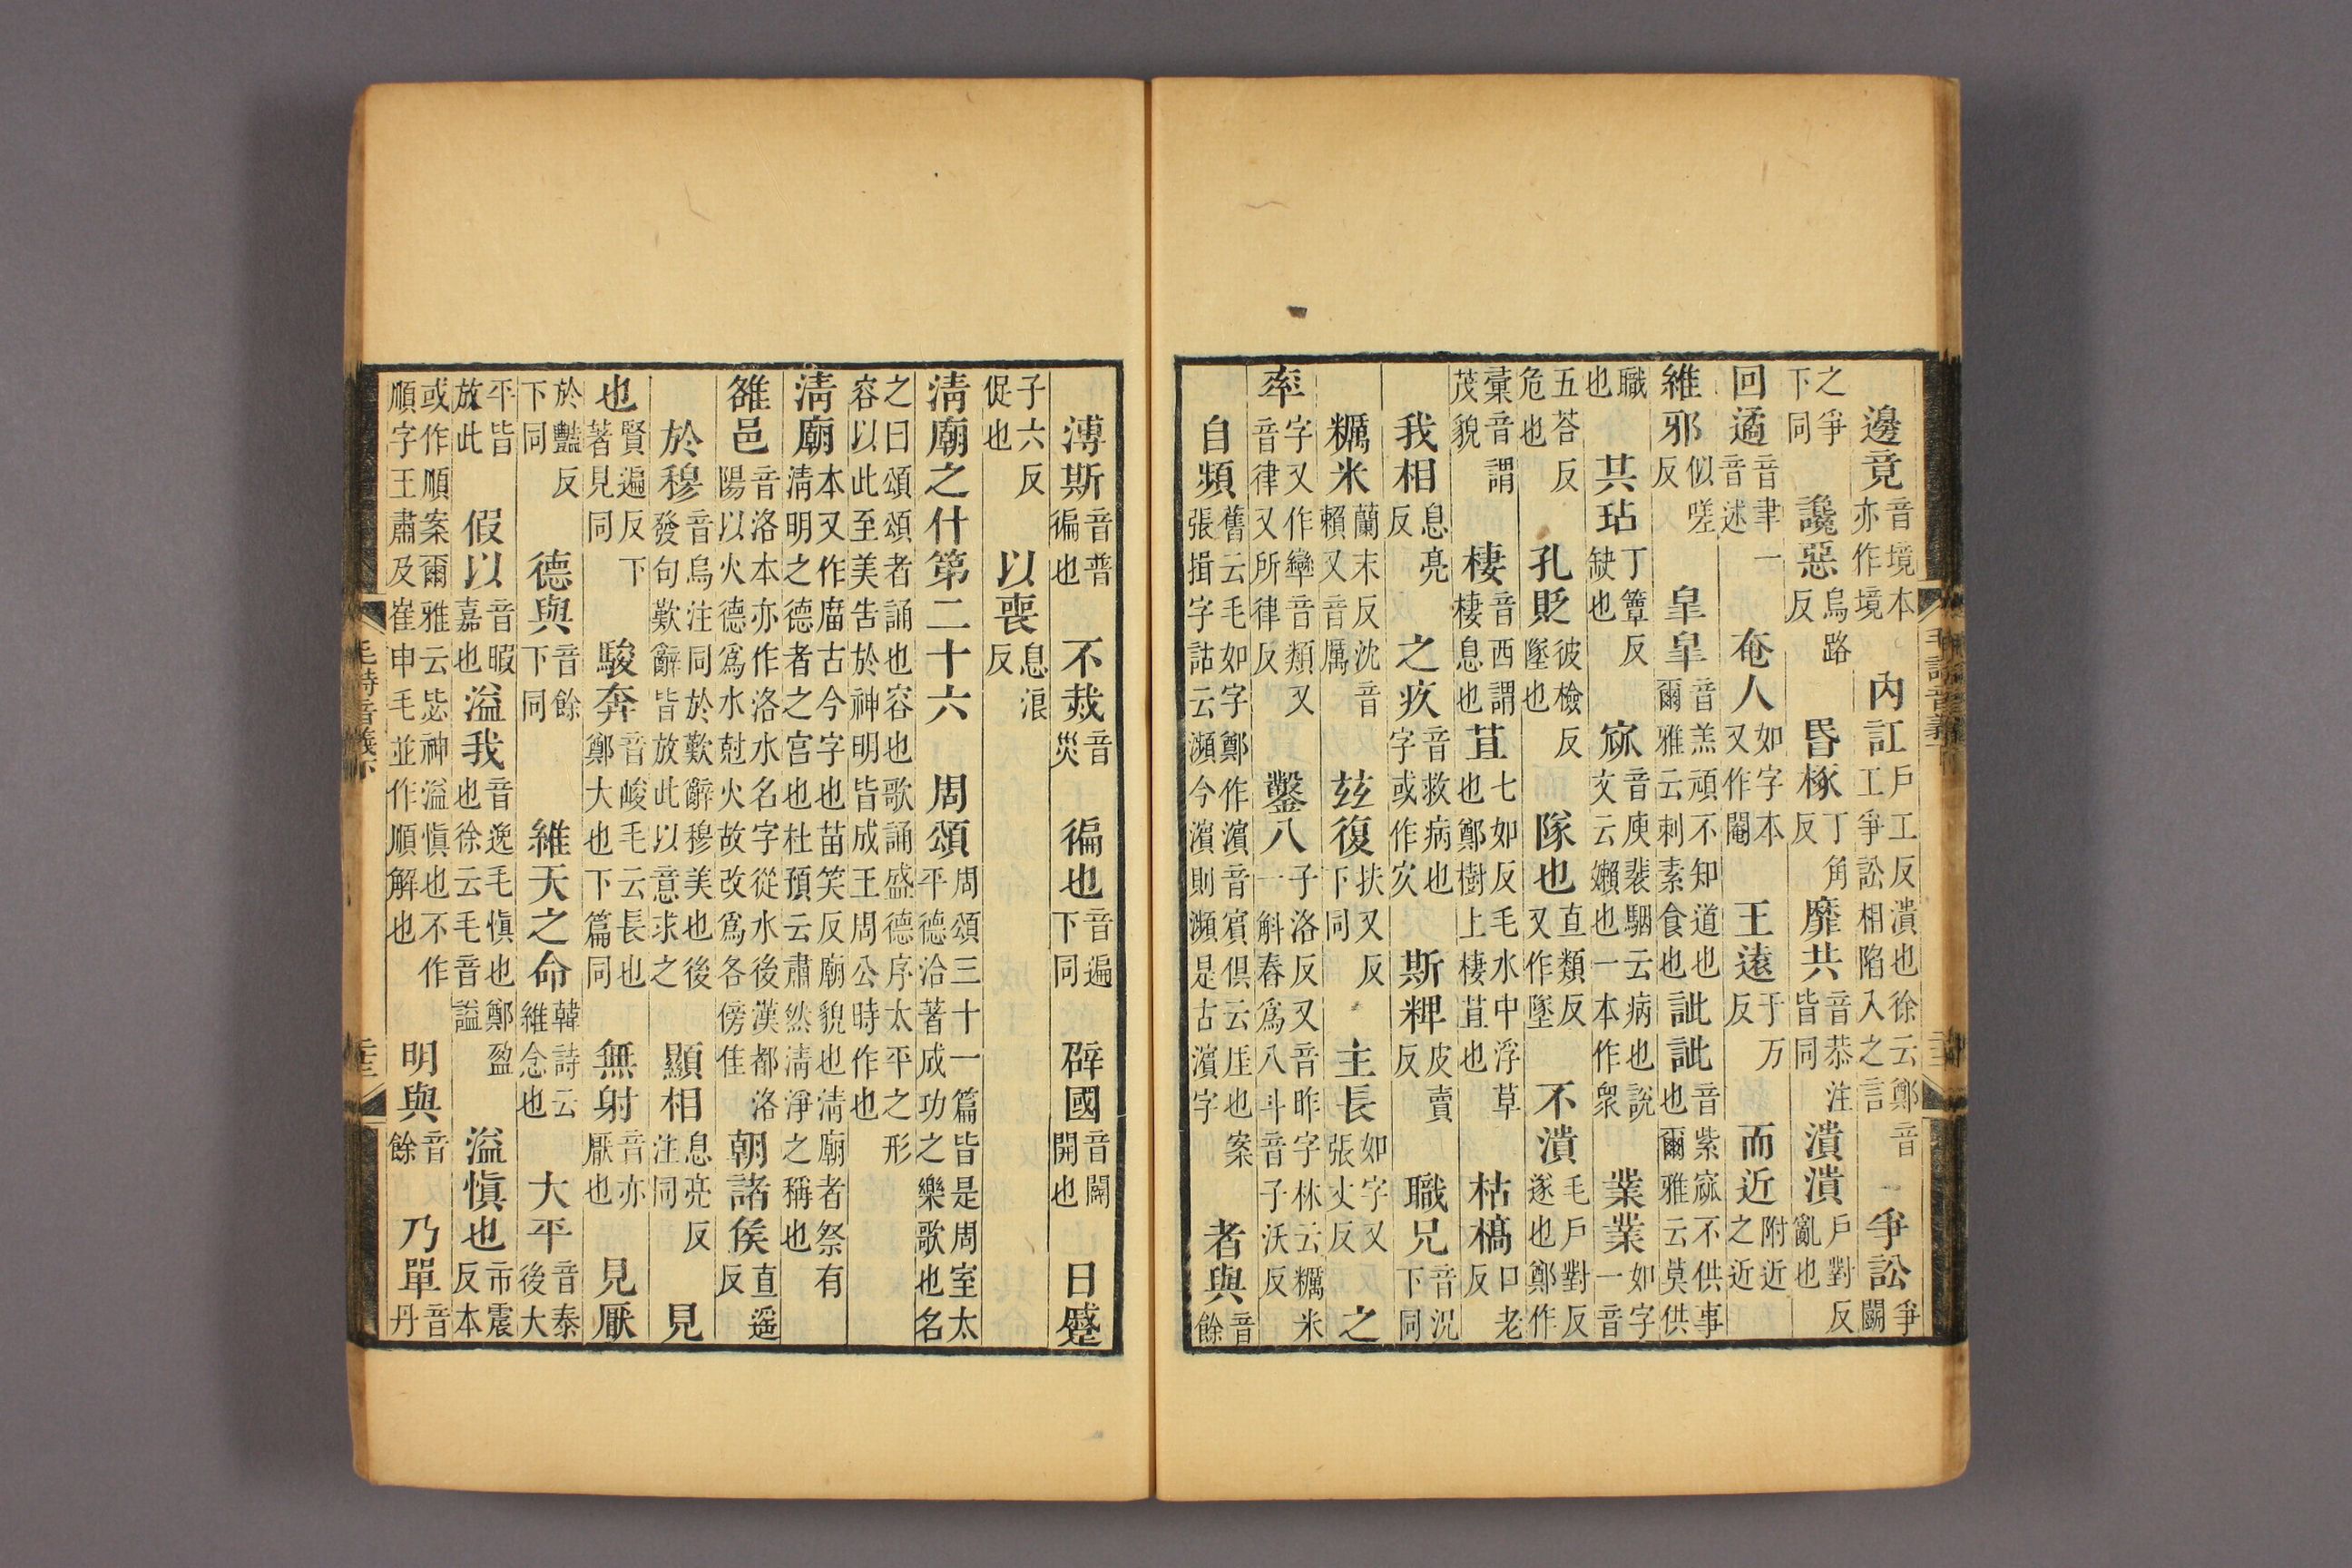 邊竟音境本亦作境內訌戶工反潰也徐云鄭音工爭訟相陷入之言爭訟爭鬬
之爭下同讒惡烏路反昏椓丁角反靡共音恭注皆同潰潰戶對反亂也
回遹音聿一音述奄人如字本又作閹王遠于万反而近附近之近
維邪似嗟反臯臯音羔頑不知道也爾雅云刺素食也訿訿音紫窳不供事也爾雅云莫供
職也其玷丁簟反缺也窳音庾裴駰云病也說文云嬾也一本作衆業業如字一音
五荅反危也孔貶彼檢反墜也隊也直類反又作墜不潰毛戶對反遂也鄭作
彙音謂茂貌棲音西謂棲息也苴七如反毛水中浮草也鄭樹上棲苴也枯槁口老反
我相息亮反之疚音救病也字或作㝌斯粺皮賣反職兄音況下同
糲米蘭末反沈音賴又音厲兹復扶又反下同主長如字又張丈反之
率字又作繂音類又音律又所律反鑿八子洛反又音昨字林云糲米一斛舂爲八斗音子沃反
自頻舊云毛如字鄭作濱音賓俱云厓也案張揖字詁云瀕今濱則瀕是古濱字者與音餘
毛詩音義下
溥斯音普徧也不烖音災徧也音遍下同辟國音闢開也日蹙
子六反促也以喪息浪反
清廟之什第二十六周頌周頌三十一篇皆是周室太平德洽著成功之樂歌也名
之曰頌頌者誦也容也歌誦盛德序太平之形容以此至美告於神明皆成王周公時作也
清廟本又作庿古今字也苗笑反廟貌也清廟者祭有清明之德者之宮也杜預云肅然清淨之稱也
雒邑音洛本亦作洛水名字從水後漢都洛陽以火德爲水尅火故改爲各傍隹朝諸侯直遥反
於穆音烏注同於歎辭穆美也後發句歎辭皆放此以意求之顯相息亮反注同見
也賢遍反下著見同駿奔音峻毛云長也鄭大也下篇同無射音亦厭也見厭
於豔反下同德與音餘下同維天之命韓詩云維念也大平音泰後大
平皆放此假以音暇嘉也溢我音逸毛慎也鄭盈也徐云毛音謚溢慎也市震反本
或作順案爾雅云毖神溢慎也不作順字王肅及崔申毛並作順解也明與音餘乃單音丹
毛詩音義下